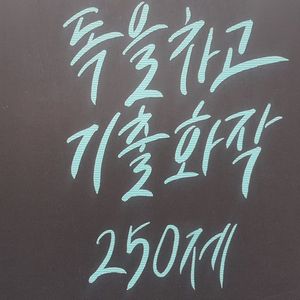 독을차고
기출화작
250제